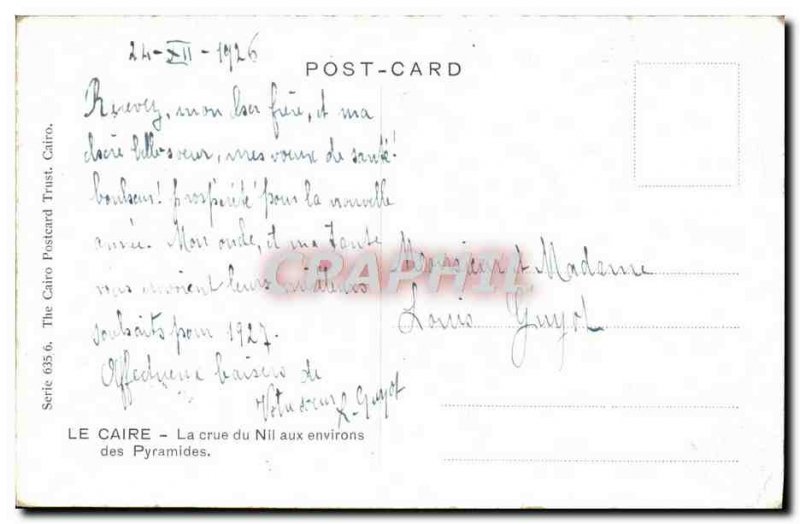 24-XII-1926
POST-CARD
Recevez, mon cher frère, et ma
chère belle sœur, mes vœux de santé!
bonheur! prospérité pour la nouvelle
année. Mon oncle, et ma tante
vous envoient leurs meilleurs
souhaits pour 1927.
Affectueux baisers de
Votre sœur
L. Guyot
Monsieur et Madame
Louis Guyot
CRAPHIL
Serie 635 6. The Cairo Postcard Trust, Cairo.
LE CAIRE - La crue du Nil aux environs
des Pyramides.